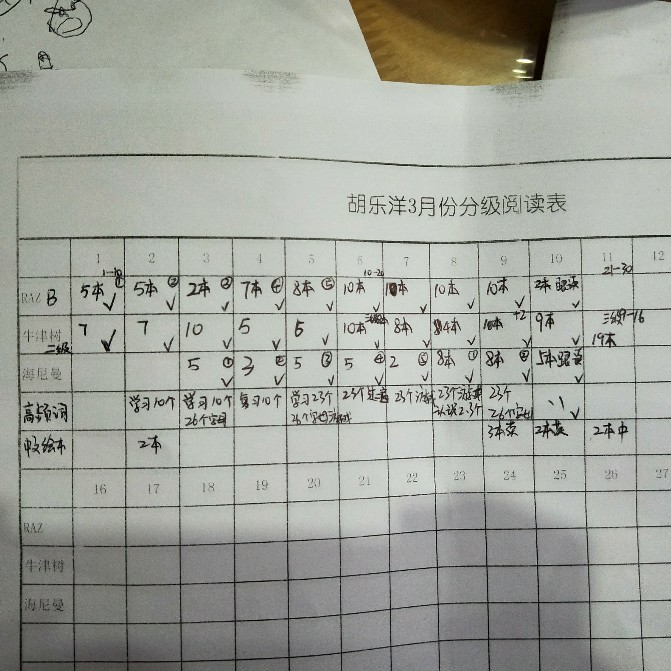 胡乐洋3月份分级阅读表
1 2 3 4 5 6 7 8 9 10 11 12
1-10 10-20 21-30
RAZ B 5本① 5本② 2本③ 7本④ 8本⑤ 10本 10本 10本 10本 2本跟读
牛津树 二级 7 7 10 5 6 10本 8本 4本 10本 +2 9本 三级9-16 19本
海尼曼 5① 3② 5③ 5④ 2⑤ 8本① 8本② 5本跟读
高频词 学习10个 学习10个 26个字母 复习10个 学习23个 26个字母游戏 23个 23个游戏 23个游戏 认读23个 23个 26个字母
中文绘本 2本 3本英 2本英 2本中
16 17 18 19 20 21 22 23 24 25 26 27
RAZ
牛津树
海尼曼